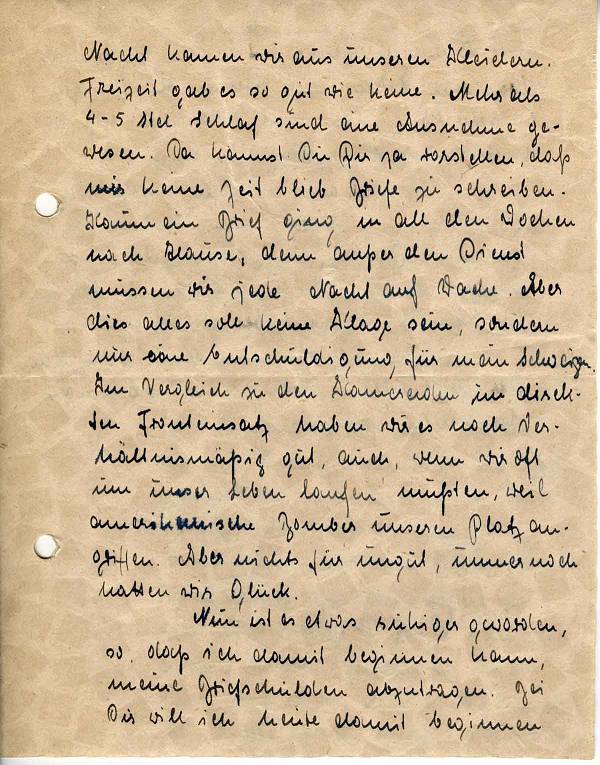 Nacht kamen wir aus unseren Kleidern.
Freizeit gab es so gut wie keine. Mehr als
4-5 Std Schlaf sind eine Ausnahme ge-
wesen. Da kannst Du Dir ja vorstellen, daß
mir keine Zeit blieb Briefe zu schreiben.
Kaum ein Brief ging in all den Wochen
nach Hause, denn außer den Dienst
müssen wir jede Nacht auf Wache. Aber
dies alles soll keine Klage sein, sondern
nur eine Entschuldigung für mein Schweigen.
Im Vergleich zu den Kameraden im direk-
ten Fronteinsatz haben wir es noch Ver-
hältnismäßig gut, auch, wenn wir oft
um unser Leben laufen mußten, weil
amerikanische Bomber unseren Platz an-
griffen. Aber nichts für ungut, immer noch
hatten wir Glück.
Nun ist es etwas ruhiger geworden,
so daß ich damit beginnen kann,
meine Briefschulden abzutragen. Bei
Dir will ich heute damit beginnen